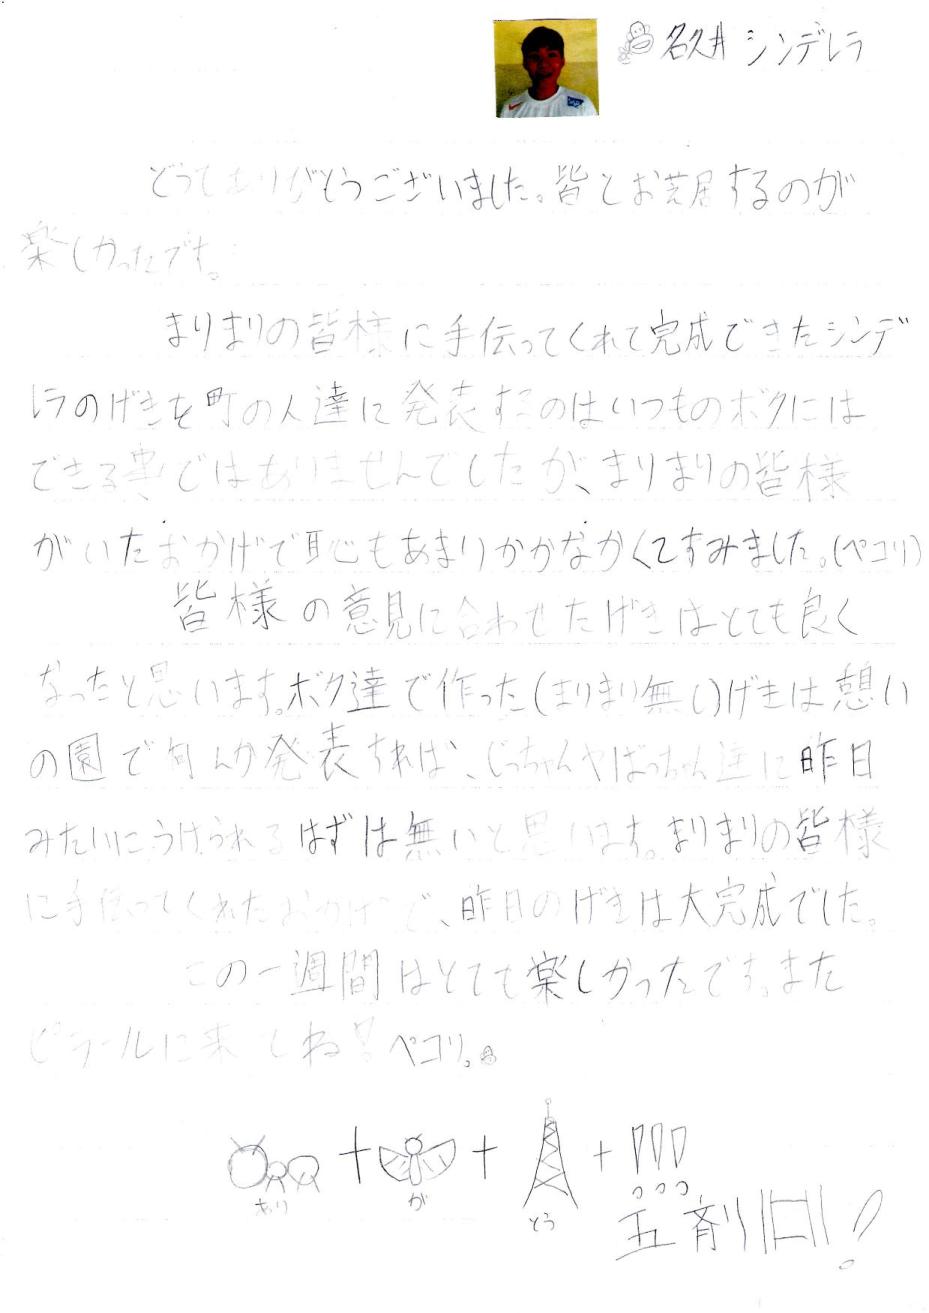 名久井 シンデレラ
どうもありがとうございました。皆とお芝居するのが
楽しかったです。
まりまりの皆様に手伝ってくれて完成できたシンデ
レラのげきを町の人達に発表するのはいつものボクには
できる事ではありませんでしたが、まりまりの皆様
がいたおかげで恥もあまりかかなかくてすみました。(ペコリ)
皆様の意見に合わせたげきはとても良く
なったと思います。ボク達で作った(まりまり無し)げきは憩い
の園で何んか発表すれば、じっちゃんやばっちゃん達に昨日
みたいにうけられるはずは無いと思います。まりまりの皆様
に手伝ってくれたおかげで、昨日のげきは大完成でした。
この一週間はとても楽しかったです。また
ピラールに来てね! ペコリ。
+ + +!!!
あり が とう
五剤!